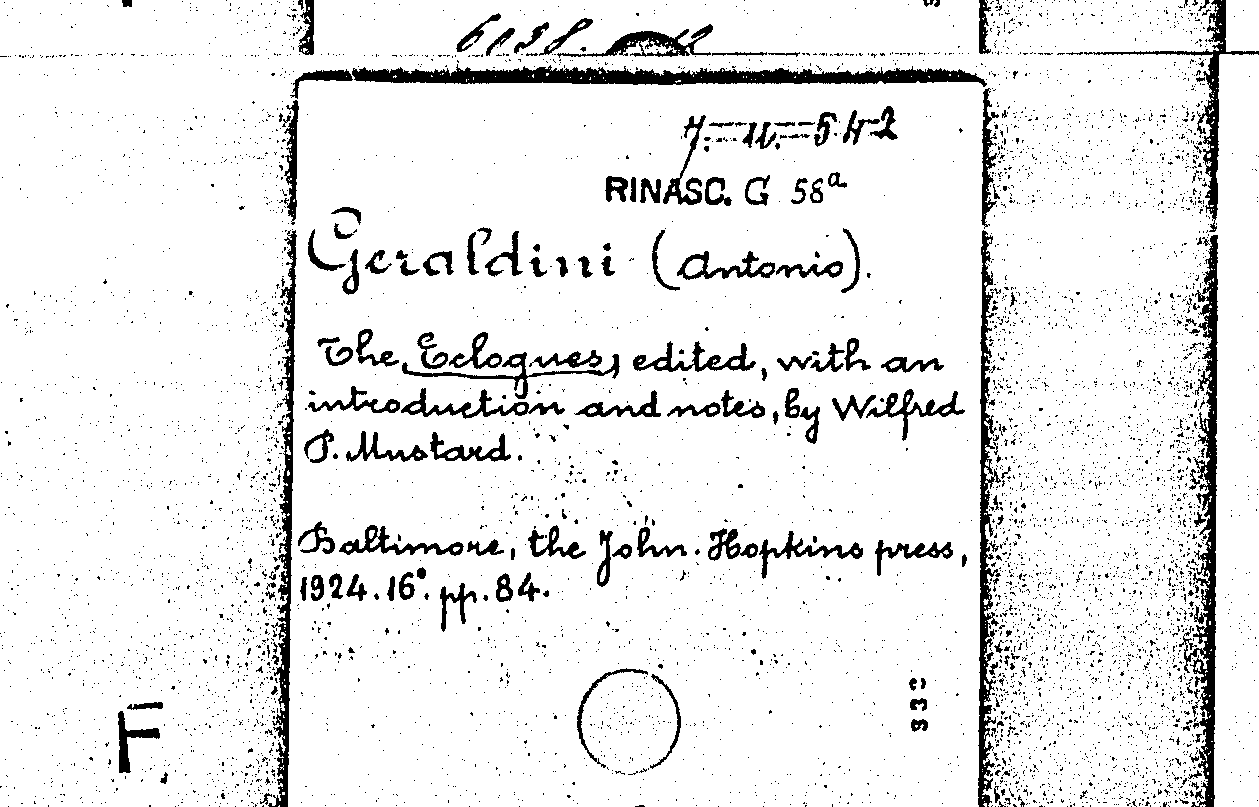 6038.
7.=11.=542
RINASC. G 58a
Geraldini (Antonio).
The Eclogues, edited, with an
introduction and notes, by Wilfred
P. Mustard.
Baltimore, the John. Hopkins press,
1924. 16°. pp. 84.
F